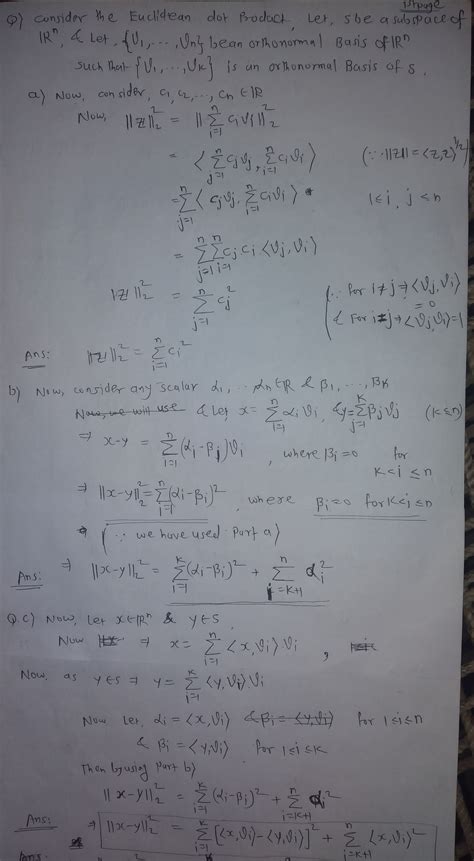 1st page
Q) consider the Euclidean dot Product, Let, S be a subspace of
ℝⁿ, & Let, {v₁, ..., vₙ} be an orthonormal Basis of ℝⁿ
such that {v₁, ..., vₖ} is an orthonormal Basis of S.
a) Now, consider, c₁, c₂, ..., cₙ ∈ ℝ
Now, ||z||₂² = ||∑ᵢ₌₁ⁿ cᵢvᵢ||₂²
= ⟨∑ⱼ₌₁ⁿ cⱼvⱼ, ∑ᵢ₌₁ⁿ cᵢvᵢ⟩ (∵ ||z|| = ⟨z,z⟩^{1/2})
= ∑ⱼ₌₁ⁿ ⟨cⱼvⱼ, ∑ᵢ₌₁ⁿ cᵢvᵢ⟩ 1≤i, j≤n
= ∑ⱼ₌₁ⁿ ∑ᵢ₌₁ⁿ cⱼ.cᵢ ⟨vⱼ, vᵢ⟩
||z||₂² = ∑ⱼ₌₁ⁿ cⱼ² (∵ for i≠j ⇒ ⟨vⱼ, vᵢ⟩ = 0
& For i=j ⇒ ⟨vⱼ, vᵢ⟩=1)
Ans: ||z||₂² = ∑ᵢ₌₁ⁿ cᵢ²
b) Now, consider any scalar α₁, ... αₙ ∈ ℝ & β₁, ..., βₖ
Now, we will use & Let x = ∑ᵢ₌₁ⁿ αᵢvᵢ, & y = ∑ⱼ₌₁ᵏ βⱼvⱼ (k≤n)
⇒ x-y = ∑ᵢ₌₁ⁿ (αᵢ-βⱼ)vᵢ, where βᵢ=0 for k<i≤n
⇒ ||x-y||₂² = ∑ᵢ₌₁ⁿ (αᵢ-βᵢ)², where βᵢ=0 for k<i≤n
(∵ we have used Part a)
Ans: ⇒ ||x-y||₂² = ∑ᵢ₌₁ᵏ (αᵢ-βᵢ)² + ∑ᵢ₌ₖ₊₁ⁿ αᵢ²
Q.c) Now, Let x∈ℝⁿ & y∈S.
Now ⇒ x = ∑ᵢ₌₁ⁿ ⟨x,vᵢ⟩vᵢ,
Now, as y∈S ⇒ y = ∑ᵢ₌₁ᵏ ⟨y,vᵢ⟩vᵢ
Now Let, αᵢ = ⟨x,vᵢ⟩ & βᵢ = ⟨y,vᵢ⟩ for 1≤i≤n
& βᵢ = ⟨y,vᵢ⟩ for 1≤i≤k
Then by using Part b)
||x-y||₂² = ∑ᵢ₌₁ᵏ (αᵢ-βᵢ)² + ∑ᵢ₌ₖ₊₁ⁿ αᵢ²
Ans: ⇒ ||x-y||₂² = ∑ᵢ₌₁ᵏ [⟨x,vᵢ⟩-⟨y,vᵢ⟩]² + ∑ᵢ₌ₖ₊₁ⁿ ⟨x,vᵢ⟩²